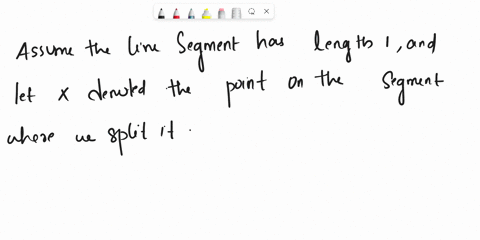 Assume the line Segment has length 1, and
let x denoted the point on the Segment
where we split it.